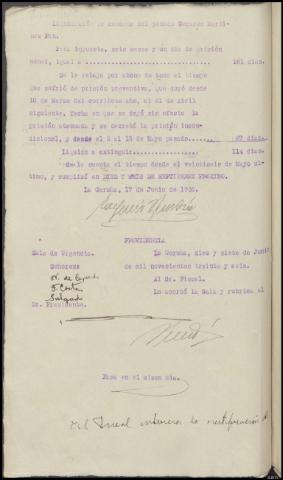 Liquidación de condena del penado Gerardo Martí-
nez Pan.
Pena impuesta, seis meses y un día de prisión
menor, igual a ............................ 181 días.
Se le rebaja por abono de todo el tiempo
que sufrió de prisión preventiva, que duró desde
10 de Marzo del corriente año, al 21 de Abril
siguiente, fecha en que se dejó sin efecto la
prisión atenuada y se decretó la prisión incon-
dicional, y desde el 2 al 13 de Mayo pasado..... días.
Líquido a extinguir............... 114 días.
se le cuenta el tiempo desde el veintiseis de Mayo úl-
timo, y cumplirá en DIEZ Y SEIS DE SEPTIEMBRE PROXIMO.
La Coruña, 17 de Junio de 1936.
PROVIDENCIA
Sala de Urgencia. La Coruña, diez y siete de Junio
Señores: de mil novecientos treinta y seis.
Al Sr. Fiscal.
Costa Lo acordó la Sala y rubrica el
Salgado
Sr. Presidente.
Pasa en el mismo día.
El Fiscal la